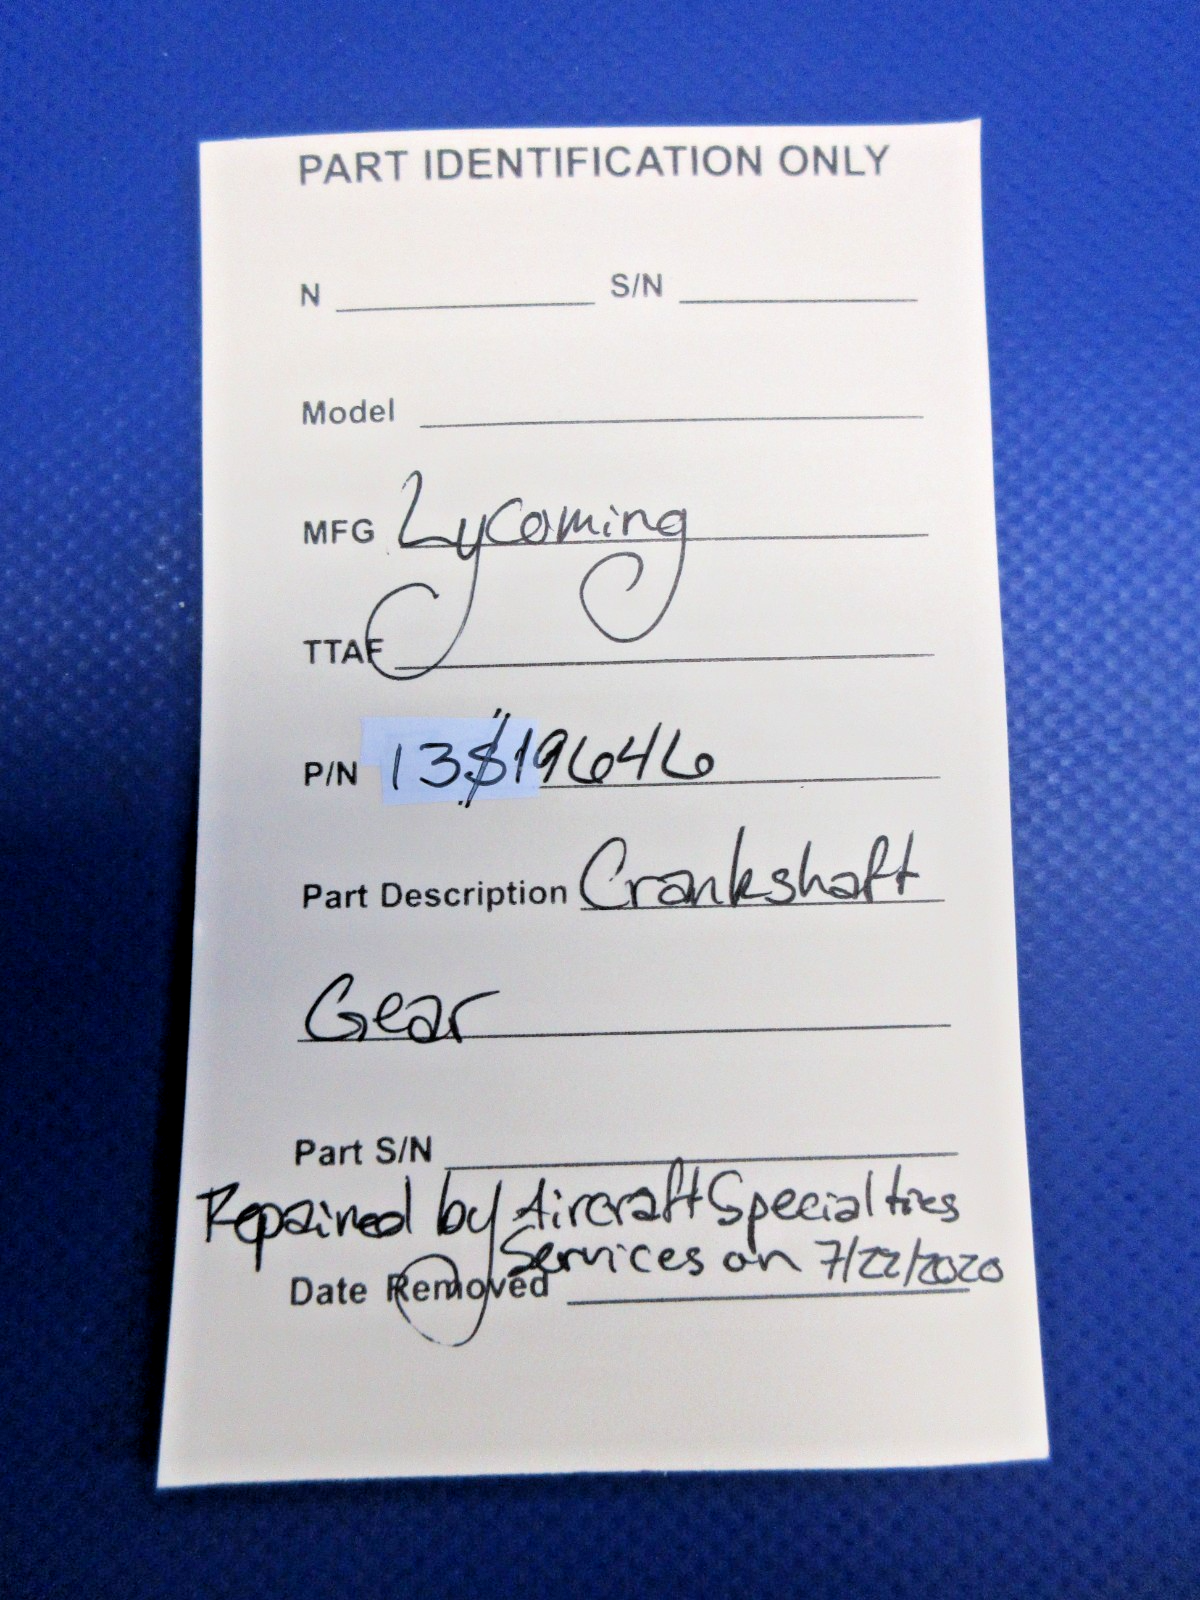 PART IDENTIFICATION ONLY
N S/N
Model
MFG Lycoming
TTAF
P/N 13S19646
Part Description Crankshaft
Gear
Part S/N
Repaired by Aircraft Specialties
Services on 7/22/2020
Date Removed